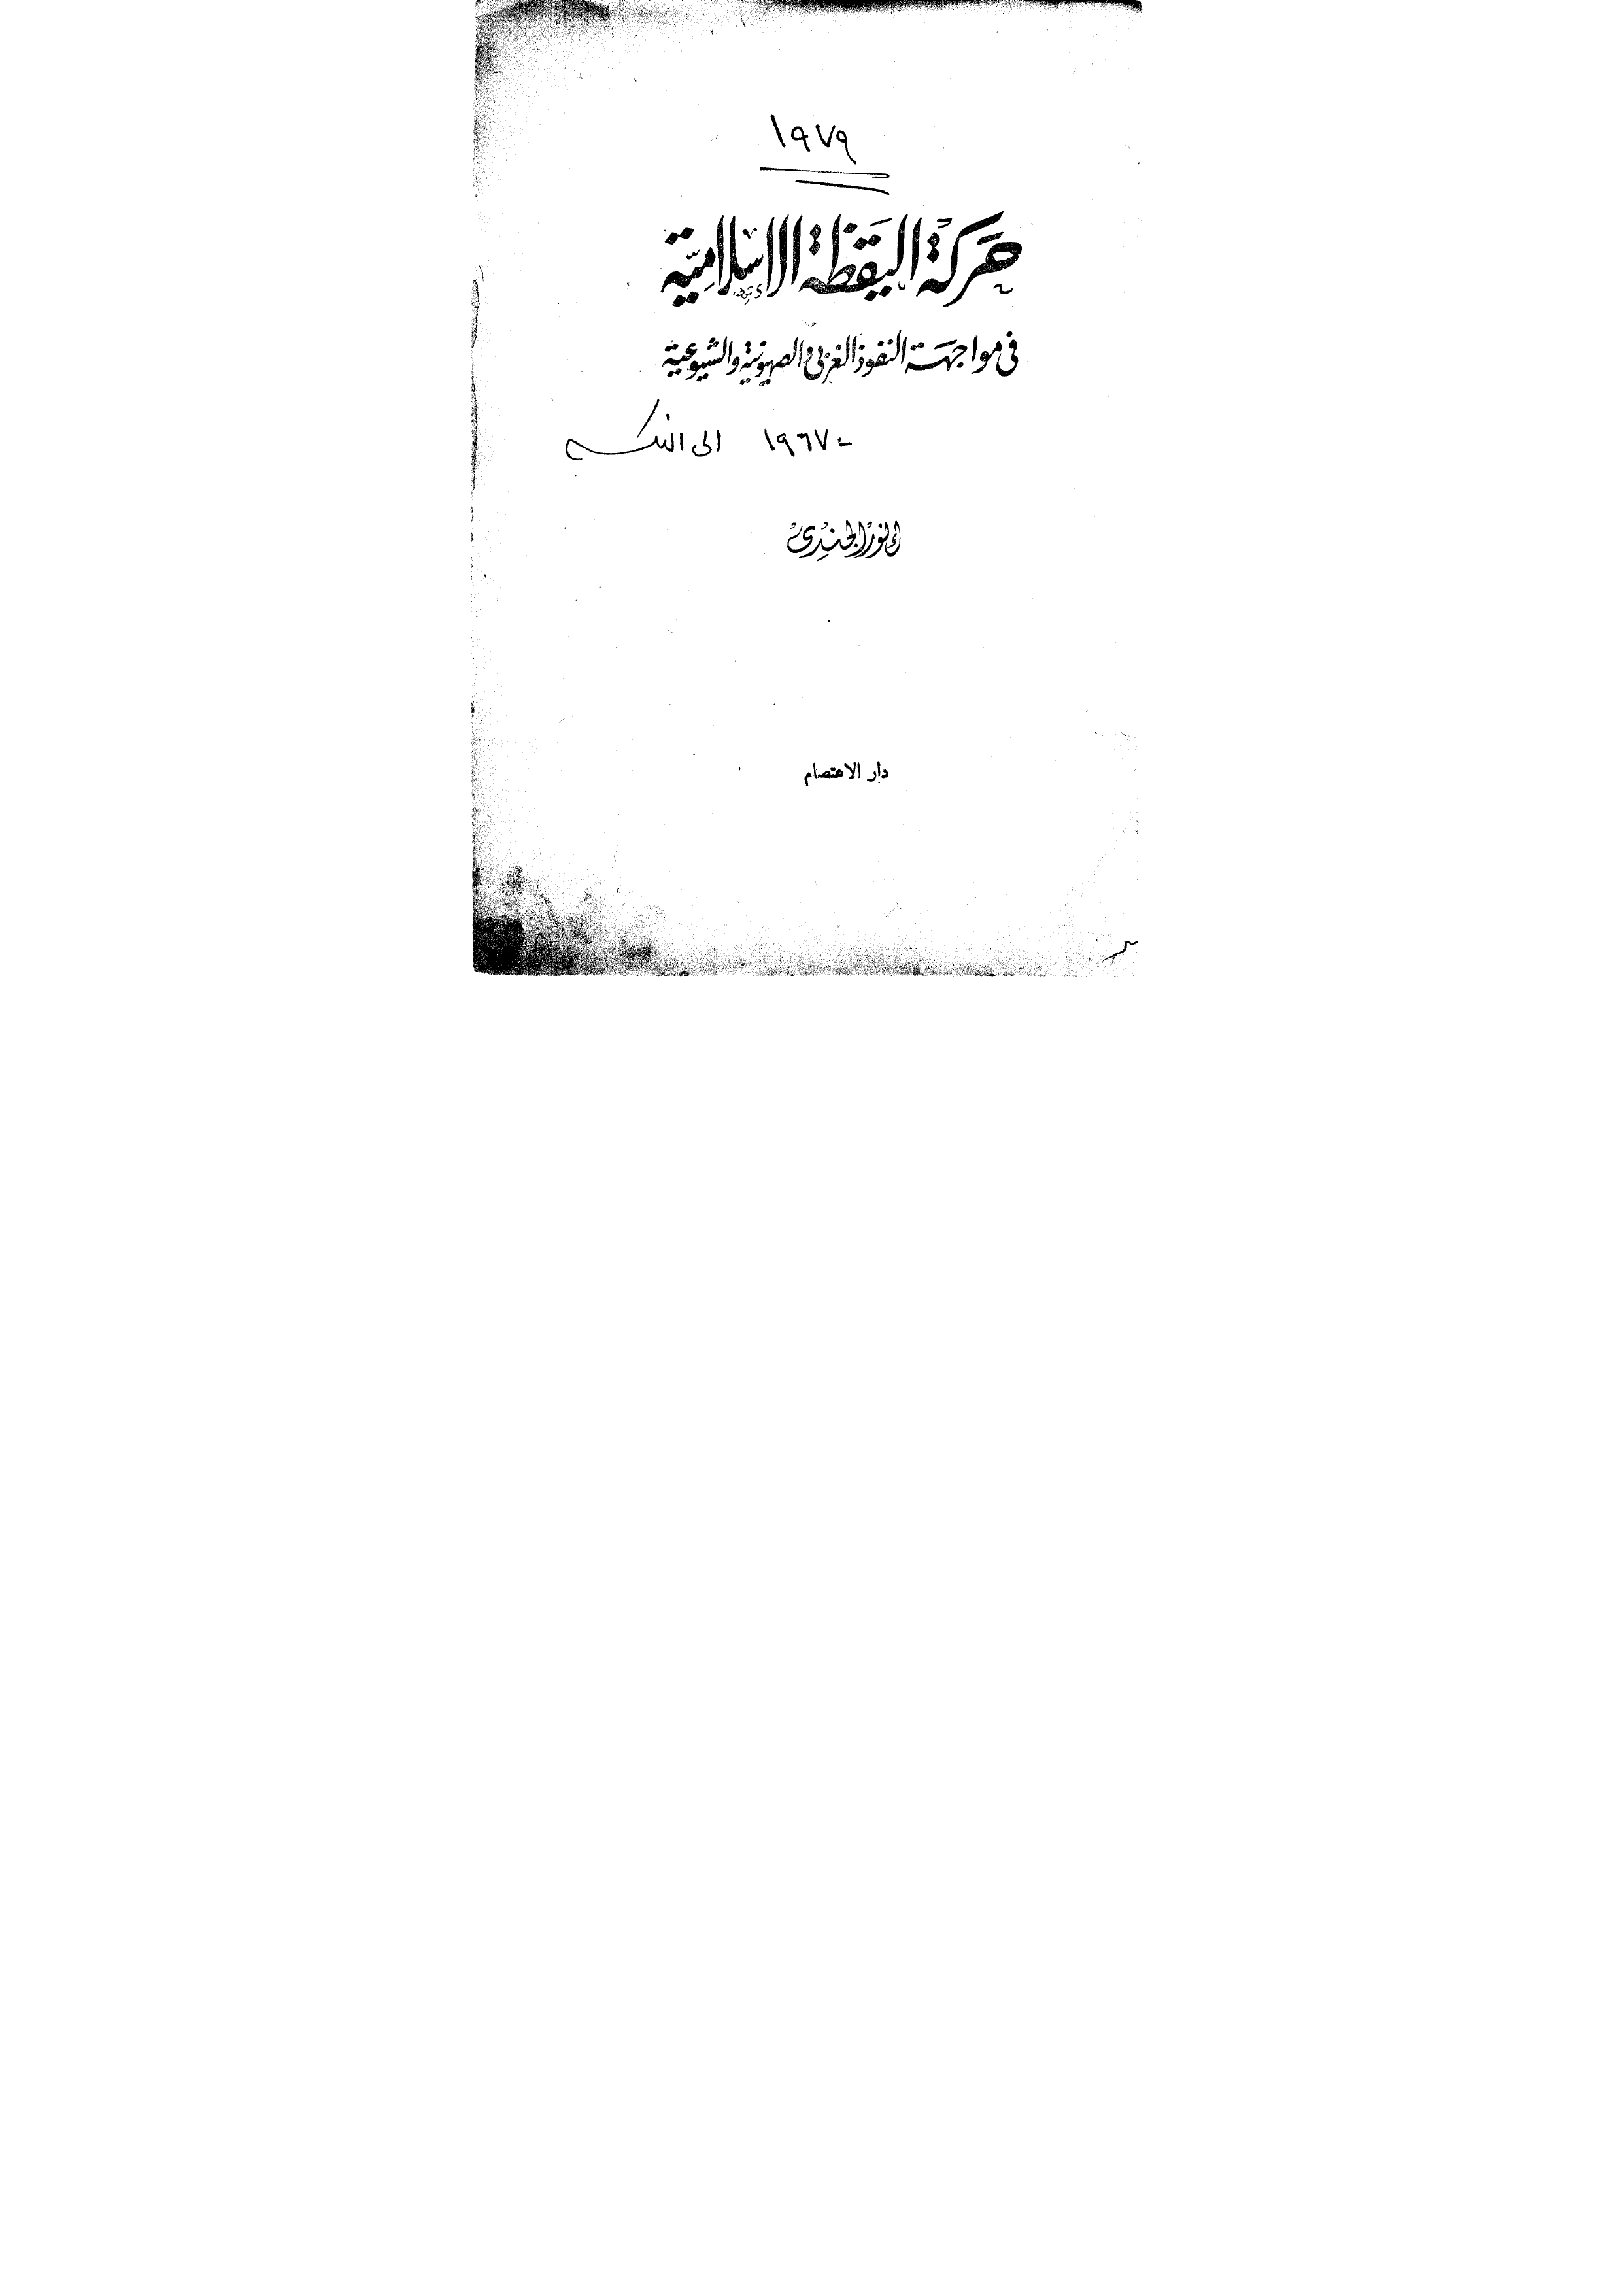 ١٩٧٩
حركة اليقظة الإسلامية
في مواجهة النفوذ الغربي والصهيونية والشيوعية
١٩٦٧ الى النكسه
أنور الجندي
دار الاعتصام